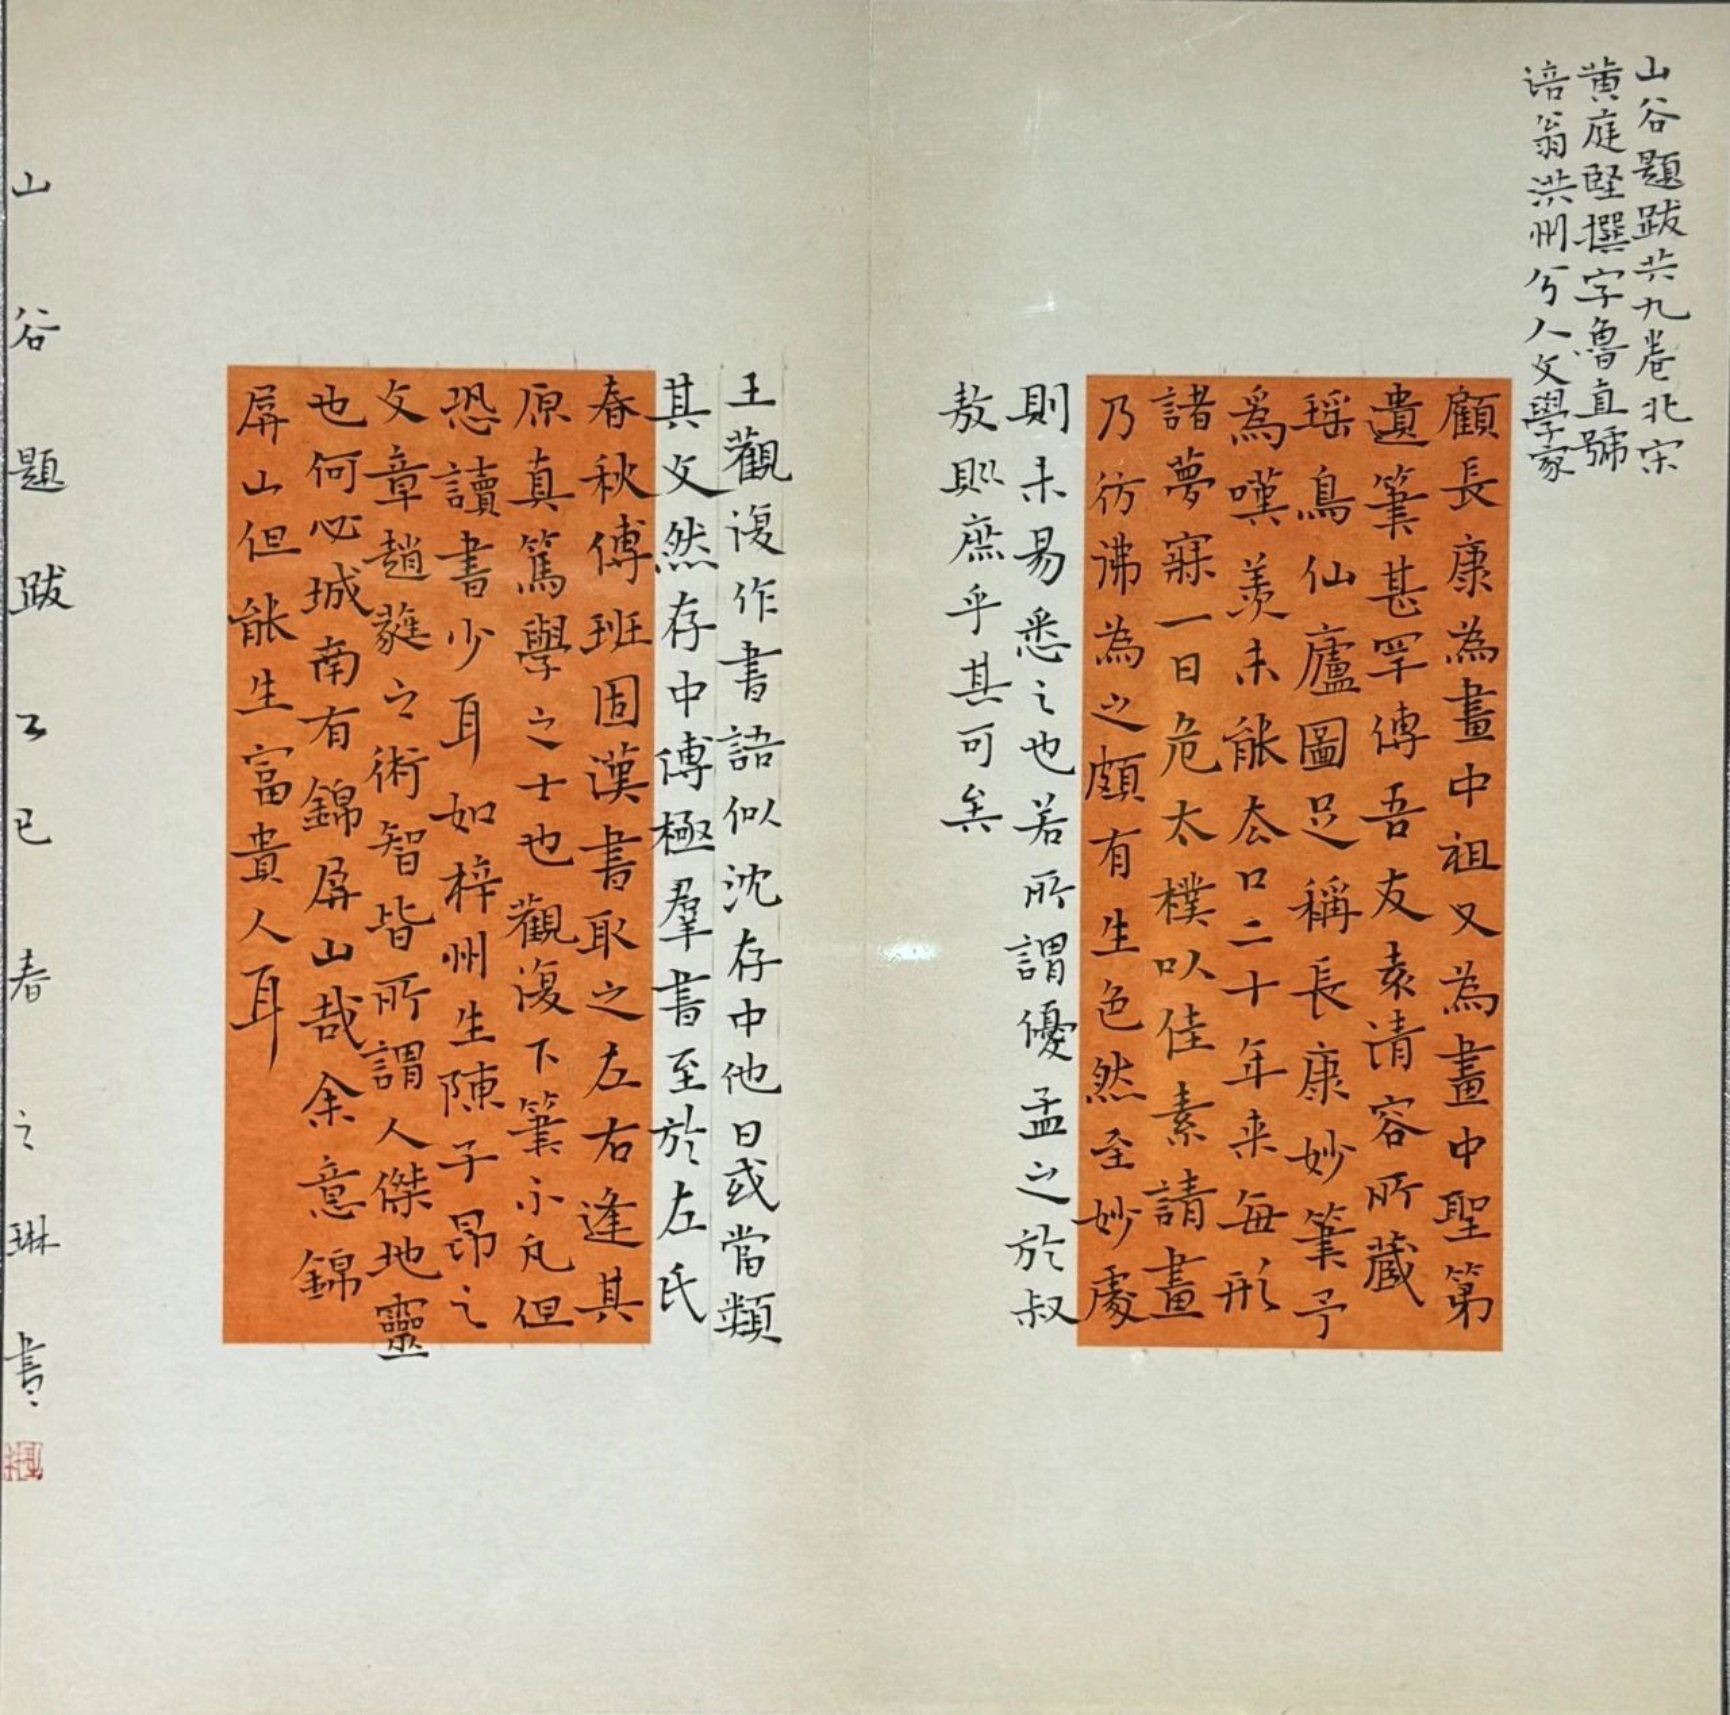 山谷題跋共九卷北宋
黄庭堅撰字魯直號
涪翁洪州分人文學家
顧長康為畫中祖又為畫中聖第
遺筆甚罕傳吾友袁清容所藏
瑶鳥仙廬圖足稱長康妙筆予
爲嘆羡未能厺口二十年来每形
諸夢寐一日危太樸以佳素請畫
乃彷彿為之頗有生色然至妙處
則未易悉之也若所謂優孟之於叔
敖則庶乎其可矣
王觀復作書語似沈存中他日或當類
其文然存中博極羣書至於左氏
春秋傳班固漢書取之左右逢其
原真篤學之士也觀復下筆不凡但
恐讀書少耳如梓州生陳子昂之
文章趙蕤之術智皆所謂人傑地靈
也何必城南有錦屏山哉余意錦
屏山但能生富貴人耳
山谷題跋乙巳春之琳書